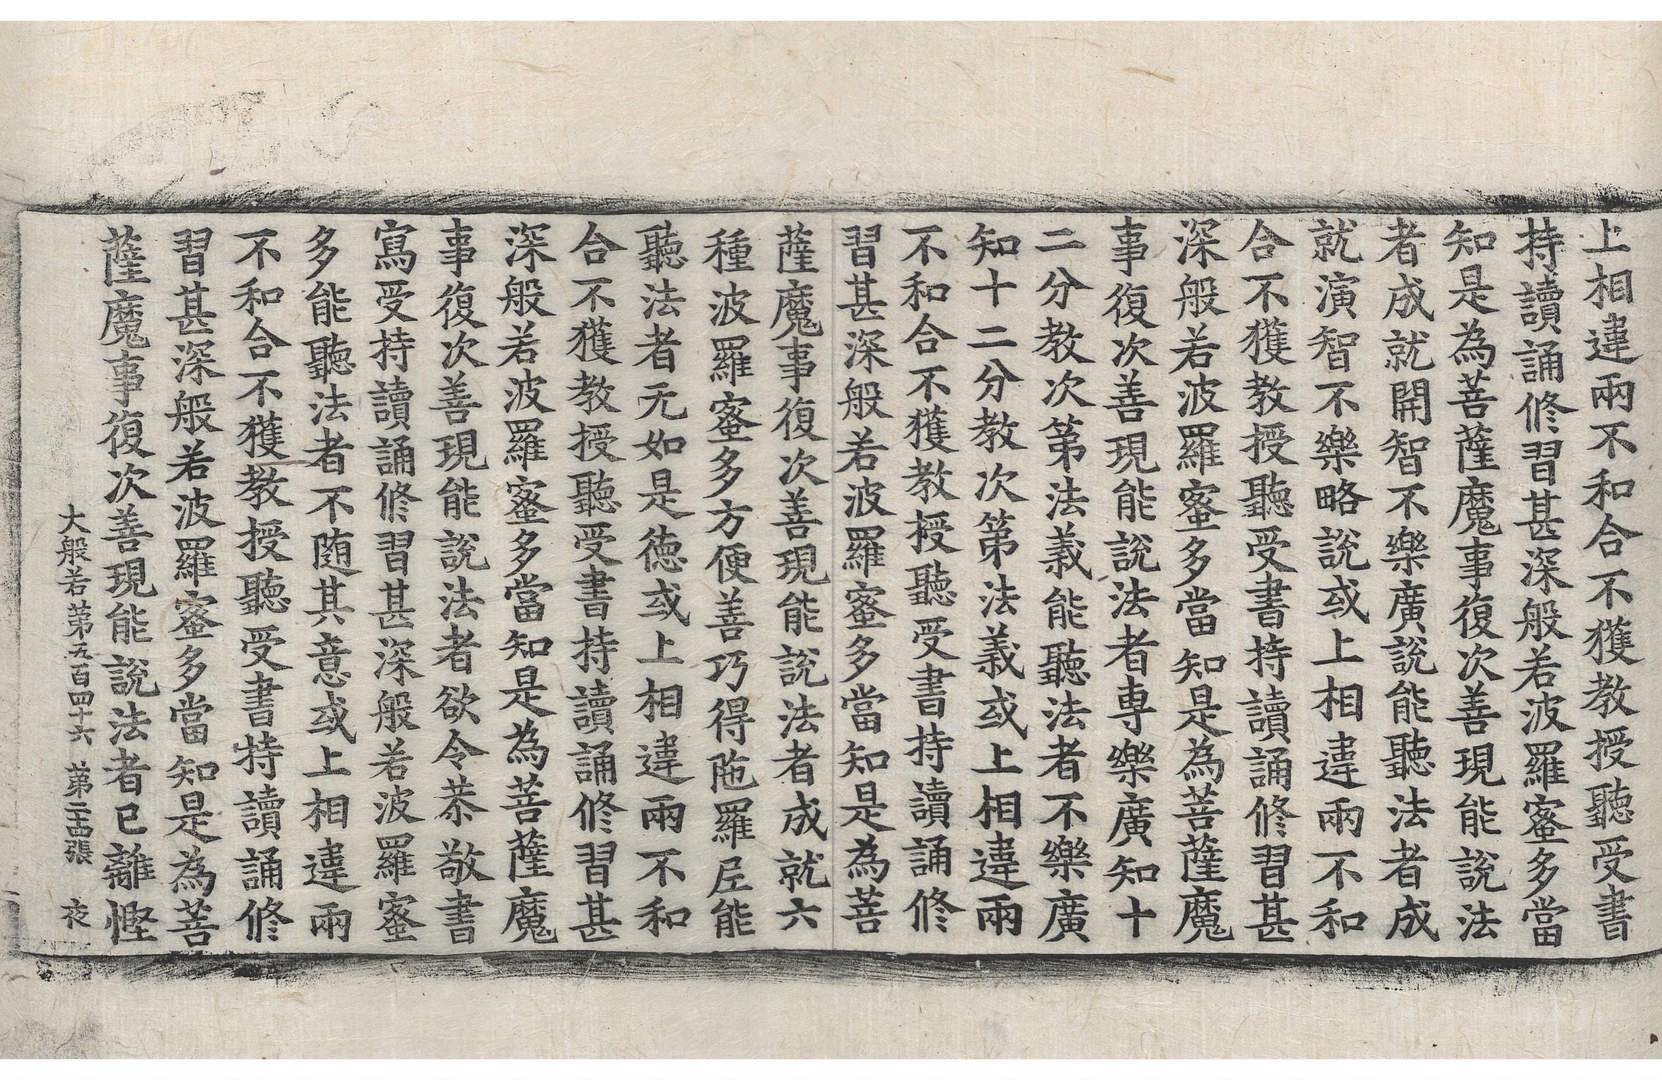 上相違兩不和合不獲教授聽受書
持讀誦修習甚深般若波羅蜜多當
知是為菩薩魔事復次善現能說法
者成就開智不樂廣說能聽法者成
就演智不樂略說或上相違兩不和
合不獲教授聽受書持讀誦修習甚
深般若波羅蜜多當知是為菩薩魔
事復次善現能說法者專樂廣知十
二分教次第法義能聽法者不樂廣
知十二分教次第法義或上相違兩
不和合不獲教授聽受書持讀誦修
習甚深般若波羅蜜多當知是為菩
薩魔事復次善現能說法者成就六
種波羅蜜多方便善巧得陁羅尼能
聽法者无如是德或上相違兩不和
合不獲教授聽受書持讀誦修習甚
深般若波羅蜜多當知是為菩薩魔
事復次善現能說法者欲令恭敬書
寫受持讀誦修習甚深般若波羅蜜
多能聽法者不随其意或上相違兩
不和合不獲教授聽受書持讀誦修
習甚深般若波羅蜜多當知是為菩
薩魔事復次善現能說法者已離慳
大般若第五百四十六 第二十四張 夜